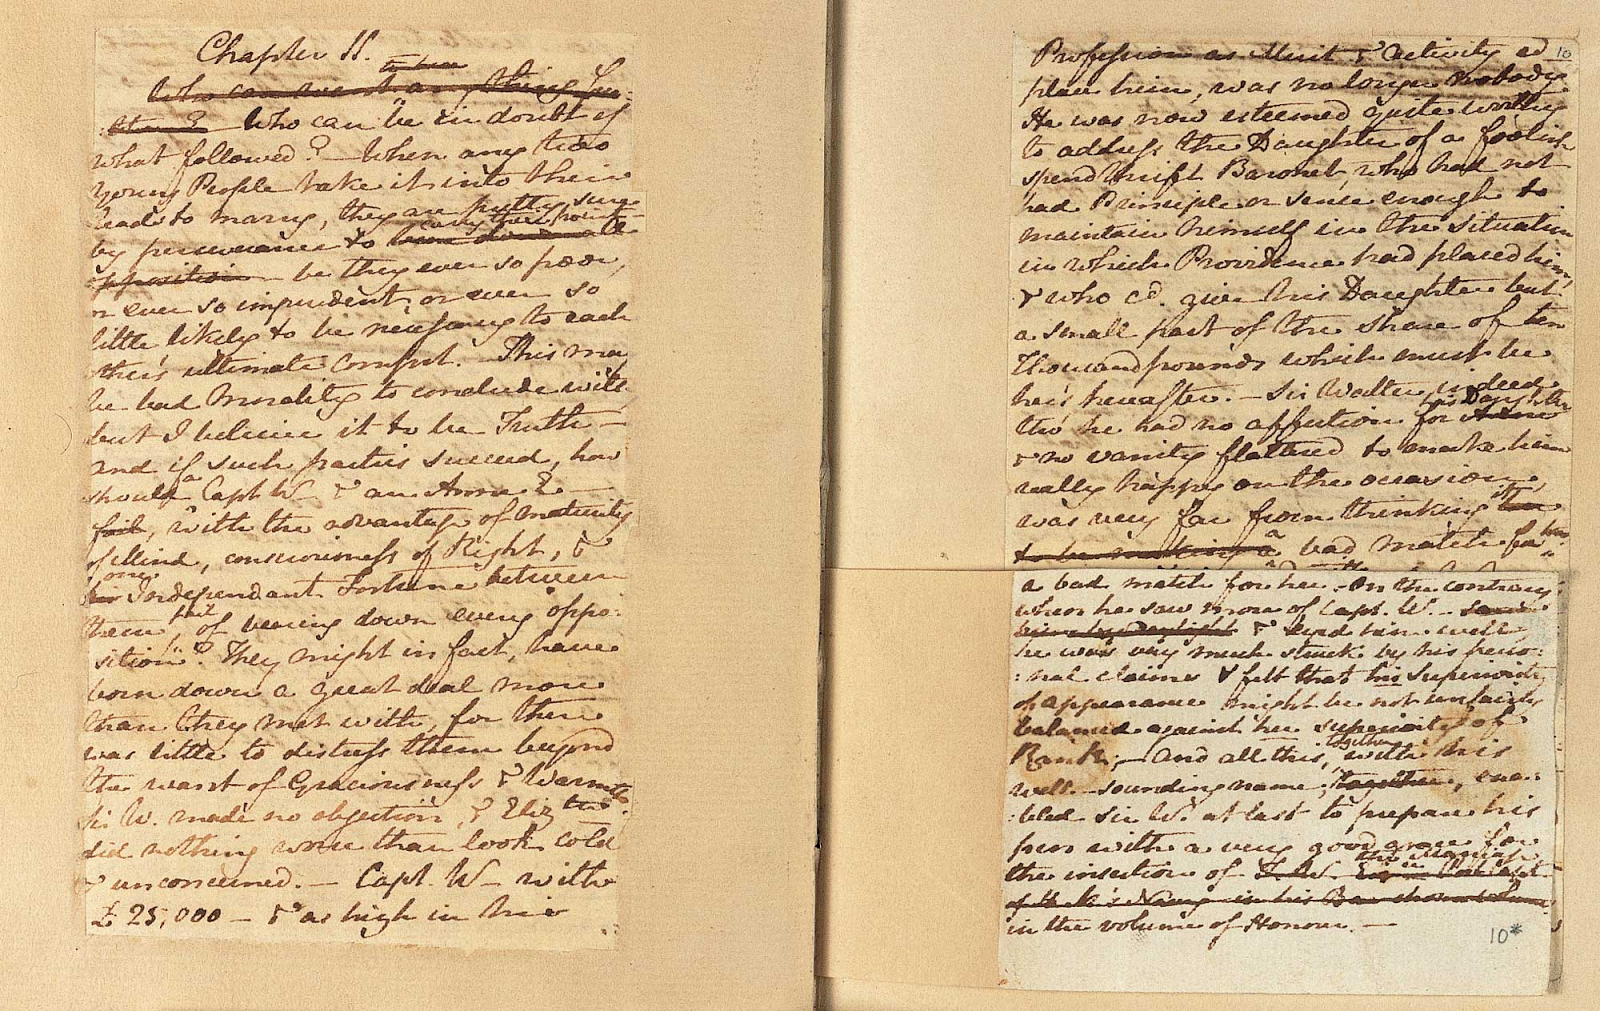 Chapter 11.
to have
Who can want any thing fur:
ther? Who can be in doubt of
what followed? - When any two
Young People take it into their
heads to marry, they are pretty sure
carry their point-
by perseverance to bear down all
opposition - be they ever so poor,
or ever so imprudent, or ever so
little likely to be necessary to each
other's ultimate comfort. This may
be bad Morality to conclude with
but I beleive it to be Truth -
and if such parties succeed, how
should a Capt W- & an Anne E -
fail, with the advantage of maturity
of Mind, consciousness of Right, &
one
an Independant Fortune between
them fail of bearing down every oppo:
sition? They might in fact, have
born down a great deal more
than they met with, for there
was little to distress them beyond
the want of Graciousness & Warmth.
Sir W. made no objection, & Eliz:th
did nothing worse than look cold
& unconcerned. - Capt. W- with
£25,000 - & as high in his
Profession as Merit & Activity cd
10
place him, was no longer nobody.
He was now esteemed quite worthy
to address the Daughter of a foolish
spendthrift Baronet, who had not
had Principle or sense enough to
maintain himself in the Situation
in which Providence had placed him,
& who cd. give his Daughter but
a small part of the share of ten
Thousand pounds which must be
her's hereafter. - Sir Walter indeed
his Daughter
tho' he had no affection for Anne
& no vanity flattered to make him
really happy on the occasion,
was very far from thinking it
to be making a bad match for her.
a bad match for her. - On the contrary
when he saw more of Capt. W. - saw
him by daylight & eyed him well
he was very much struck by his perso:
:nal claims & felt that his superiority
of appearance might be not unfairly
balanced against her superiority of
Rank; - and all this, together with his
well-sounding name, together, ena:
:bled Sir W. at last to prepare his
pen with a very good grace for
the Marriage
the insertion of
in the volume of Honour. -
10*